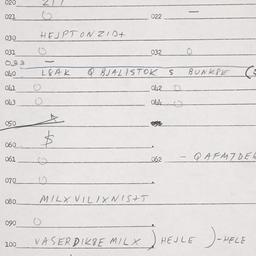 020
021 022 —
030 HEJPTONZID+
031 O 032 O
033 —
040 LGAK Q BJALISTOK S BUNKBE (
041 O 042 O
043 O 044 O
050
060 $
061 O 062 - QAFM7DE
070 O
080 MILXVILIXNIS+T
090 O
100 VASERDIKBE MILX ) HEJLE )-HELE